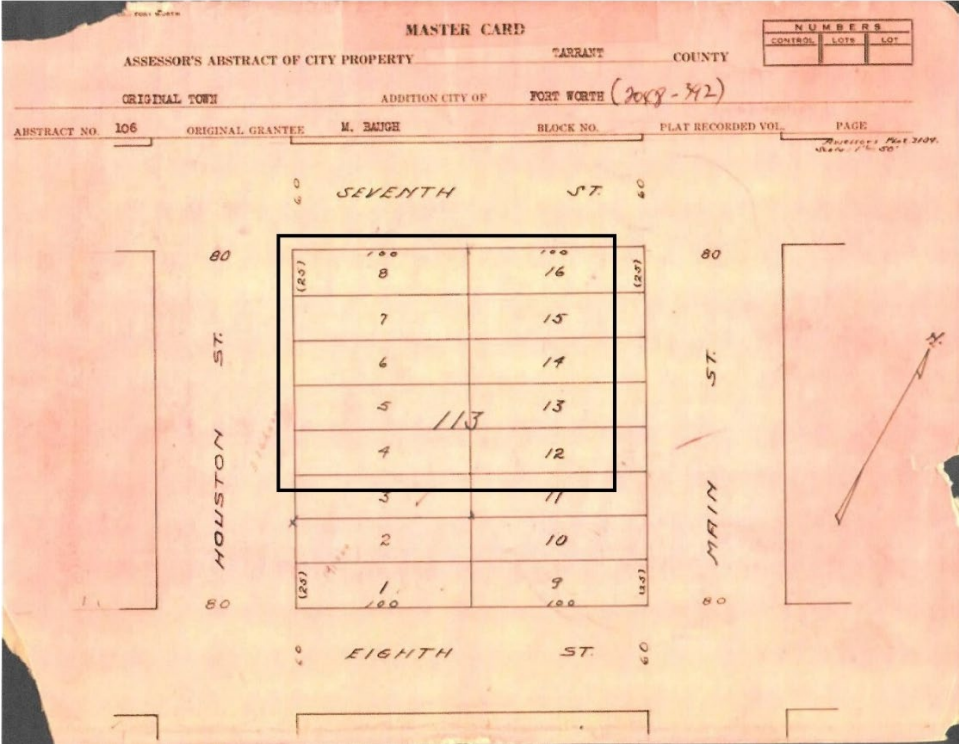 FORT WORTH
MASTER CARD
NUMBERS
CONTROL LOTS LOT
ASSESSOR'S ABSTRACT OF CITY PROPERTY TARRANT COUNTY
ORIGINAL TOWN ADDITION CITY OF FORT WORTH (2048-392)
ABSTRACT NO. 106 ORIGINAL GRANTEE M. BAUGH BLOCK NO. PLAT RECORDED VOL. PAGE
Assessors Plat 3104.
Scale: 1"= 50'
60 SEVENTH ST. 60
80 100 100 80
(25) 8 16 (25)
7 15
HOUSTON ST.
MAIN ST.
N.
6 14
5 13
113
4 12
3 11
2 10
(25) 1 9 (25)
80 100 100 80
60 EIGHTH ST. 60